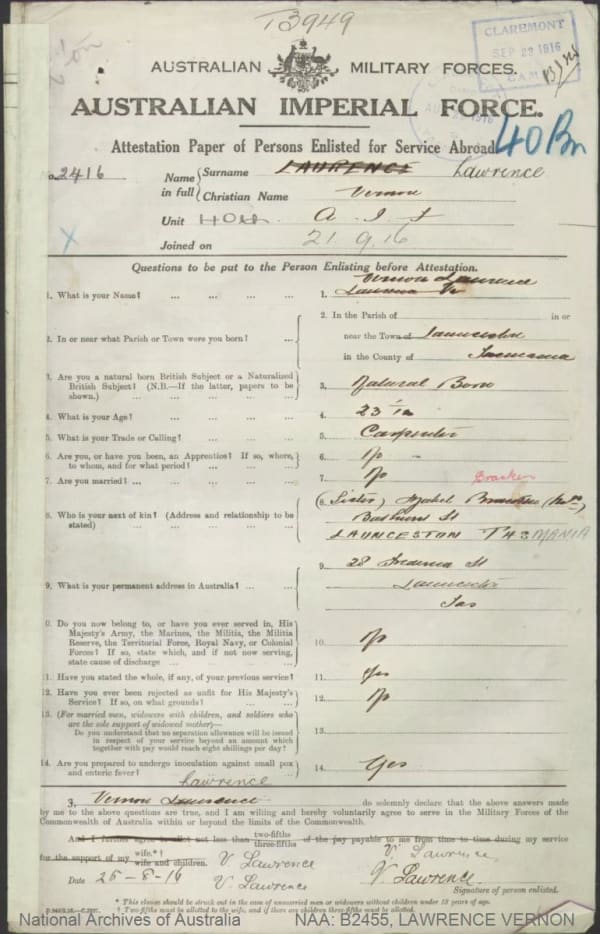 T3949
CLAREMONT
SEP 23 1916
CAMP
AUSTRALIAN MILITARY FORCES.
AUSTRALIAN IMPERIAL FORCE.
40 Bn
Attestation Paper of Persons Enlisted for Service Abroad
2416
Name in full { Surname LAURENCE Lawrence
Christian Name Vernon
Unit A. I. F
Joined on 21. 9. 16
Questions to be put to the Person Enlisting before Attestation.
Vernon Laurence
1. What is your Name? ... ... ... 1.
2. In or near what Parish or Town were you born? ... 2. In the Parish of in or
near the Town of Launceston
in the County of Tasmania
3. Are you a natural born British Subject or a Naturalized British Subject? (N.B.—If the latter, papers to be shown.) ... 3. Natural Born
4. What is your Age? ... ... ... 4. 23
5. What is your Trade or Calling? ... ... 5. Carpenter
6. Are you, or have you been, an Apprentice? If so, where, to whom, and for what period? ... ... 6. No
7. Are you married? ... ... ... 7. No
Bracken
8. Who is your next of kin? (Address and relationship to be stated) ... (Sister)
Bathurst St
LAUNCESTON TASMANIA
9. What is your permanent address in Australia? ... ... 9. 28 St
Launceston
Tas
0. Do you now belong to, or have you ever served in, His Majesty's Army, the Marines, the Militia, the Militia Reserve, the Territorial Force, Royal Navy, or Colonial Forces? If so, state which, and if not now serving, state cause of discharge ... 10. No
11. Have you stated the whole, if any, of your previous service? 11. Yes
12. Have you ever been rejected as unfit for His Majesty's Service? If so, on what grounds? ... 12. No
13. (For married men, widowers with children, and soldiers who are the sole support of widowed mother)—
Do you understand that no separation allowance will be issued in respect of your service beyond an amount which together with pay would reach eight shillings per day?
14. Are you prepared to undergo inoculation against small pox and enteric fever? 14. Yes
Lawrence
I, Vernon Laurence do solemnly declare that the above answers made
by me to the above questions are true, and I am willing and hereby voluntarily agree to serve in the Military Forces of the
Commonwealth of Australia within or beyond the limits of the Commonwealth.
And I further agree to allot not less than two-fifths three-fifths of the pay payable to me from time to time during my service
for the support of my wife.*† wife and children. V. Lawrence V. Lawrence
Date 25-8-16 V. Lawrence V. Lawrence
Signature of person enlisted.
* This clause should be struck out in the case of unmarried men or widowers without children under 18 years of age.
† Two-fifths must be allotted to the wife, and if there are children three-fifths must be allotted.
National Archives of Australia NAA: B2455, LAWRENCE VERNON